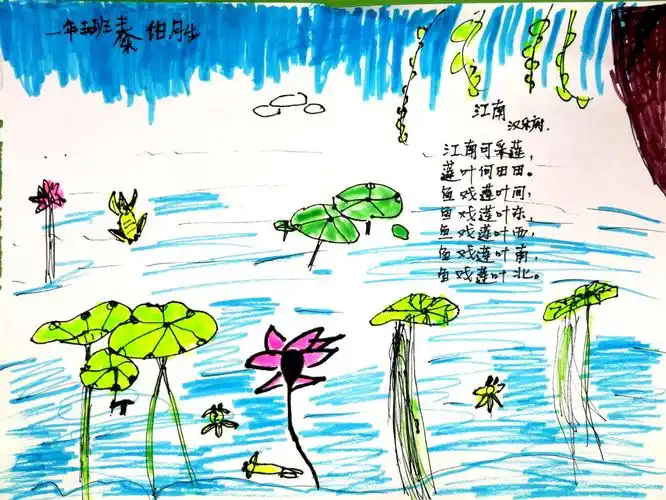 一年 班 秦
江南
汉乐府.
江南可采莲，
莲叶何田田。
鱼戏莲叶间，
鱼戏莲叶东，
鱼戏莲叶西，
鱼戏莲叶南，
鱼戏莲叶北。